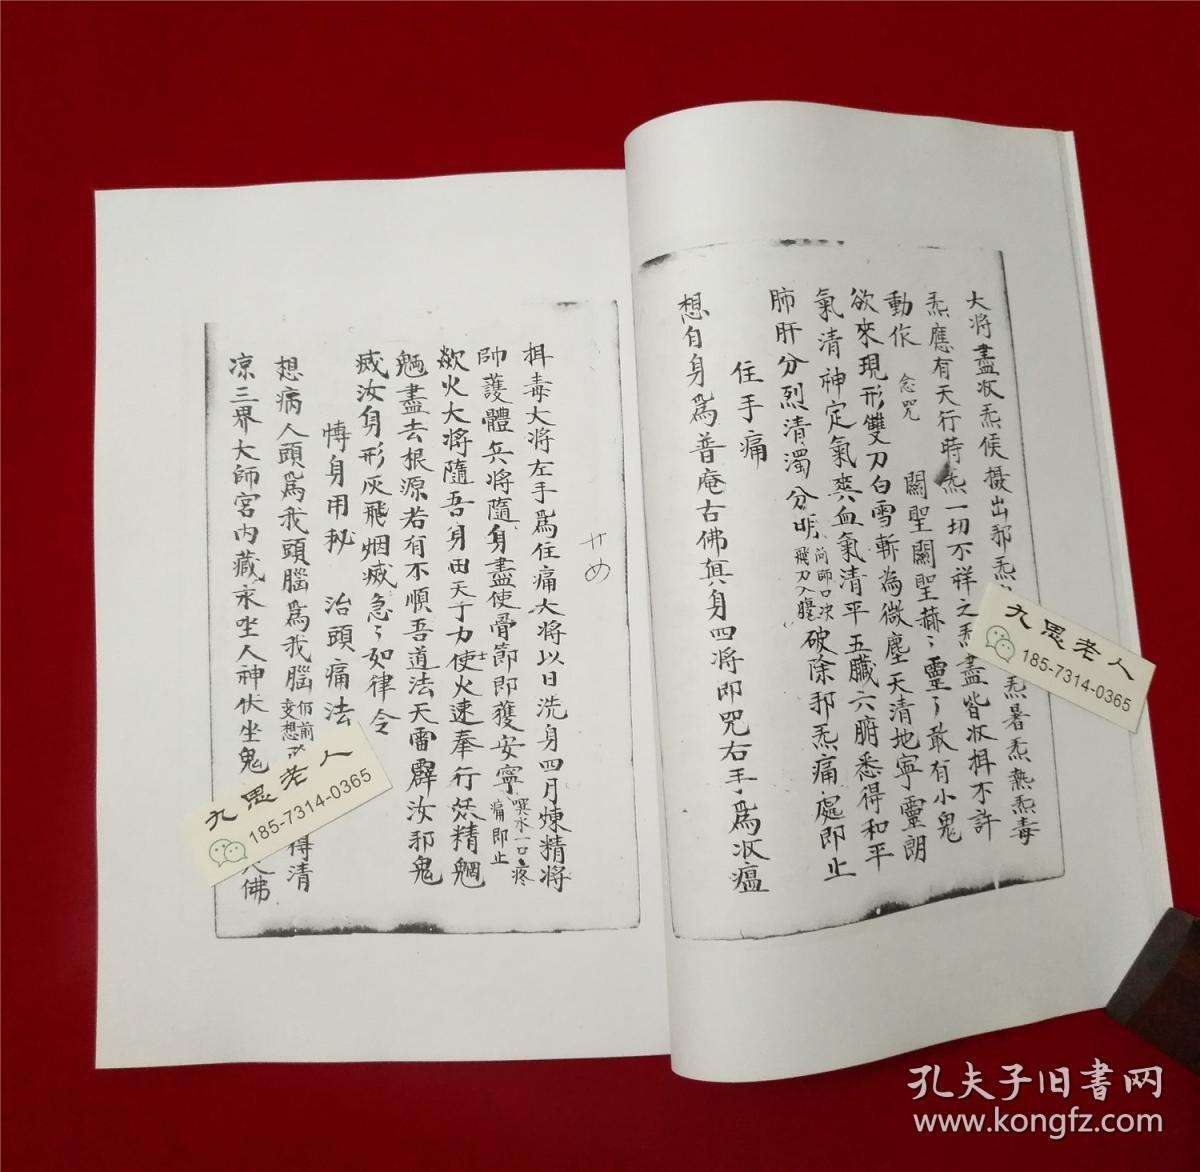 大将盡收炁侯摄出邪炁炁暑炁熱炁毒
炁應有天行時炁一切不祥之炁盡皆收押不許
動作 念咒 關聖關聖赫〻靈〻敢有小鬼
欲來現形雙刀白雪斬為微塵天清地寧靈朗
氣清神定氣爽血氣清平五臟六腑悉得和平
肺肝分烈清濁分明 飛刀入腹 破除邪炁痛處即止
住手痛
想自身爲普庵古佛真身四将即咒右手爲收瘟
廿め
押毒大将左手爲住痛大将以日洗身四月煉精将
帥護體兵将隨身盡使骨節即獲安寧 噀水一口疼痛即止
欻火大将隨吾身田天丁力士使火速奉行妖精魍
魎盡去根源若有不順吾道法天雷霹汝邪鬼
烕汝身形灰飛烟烕急〻如律令
愽身用秘 治頭痛法
想病人頭爲我頭腦爲我腦得清
凉三界大師宮内藏永坐人神伏坐鬼佛
九思老人
185-7314-0365
九思老人
185-7314-0365
孔夫子旧书网
www.kongfz.com